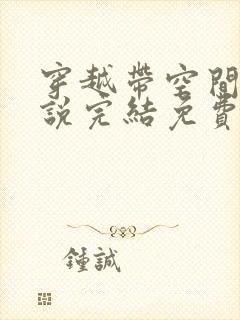 穿越帶空間
說完結免費
鍾誠